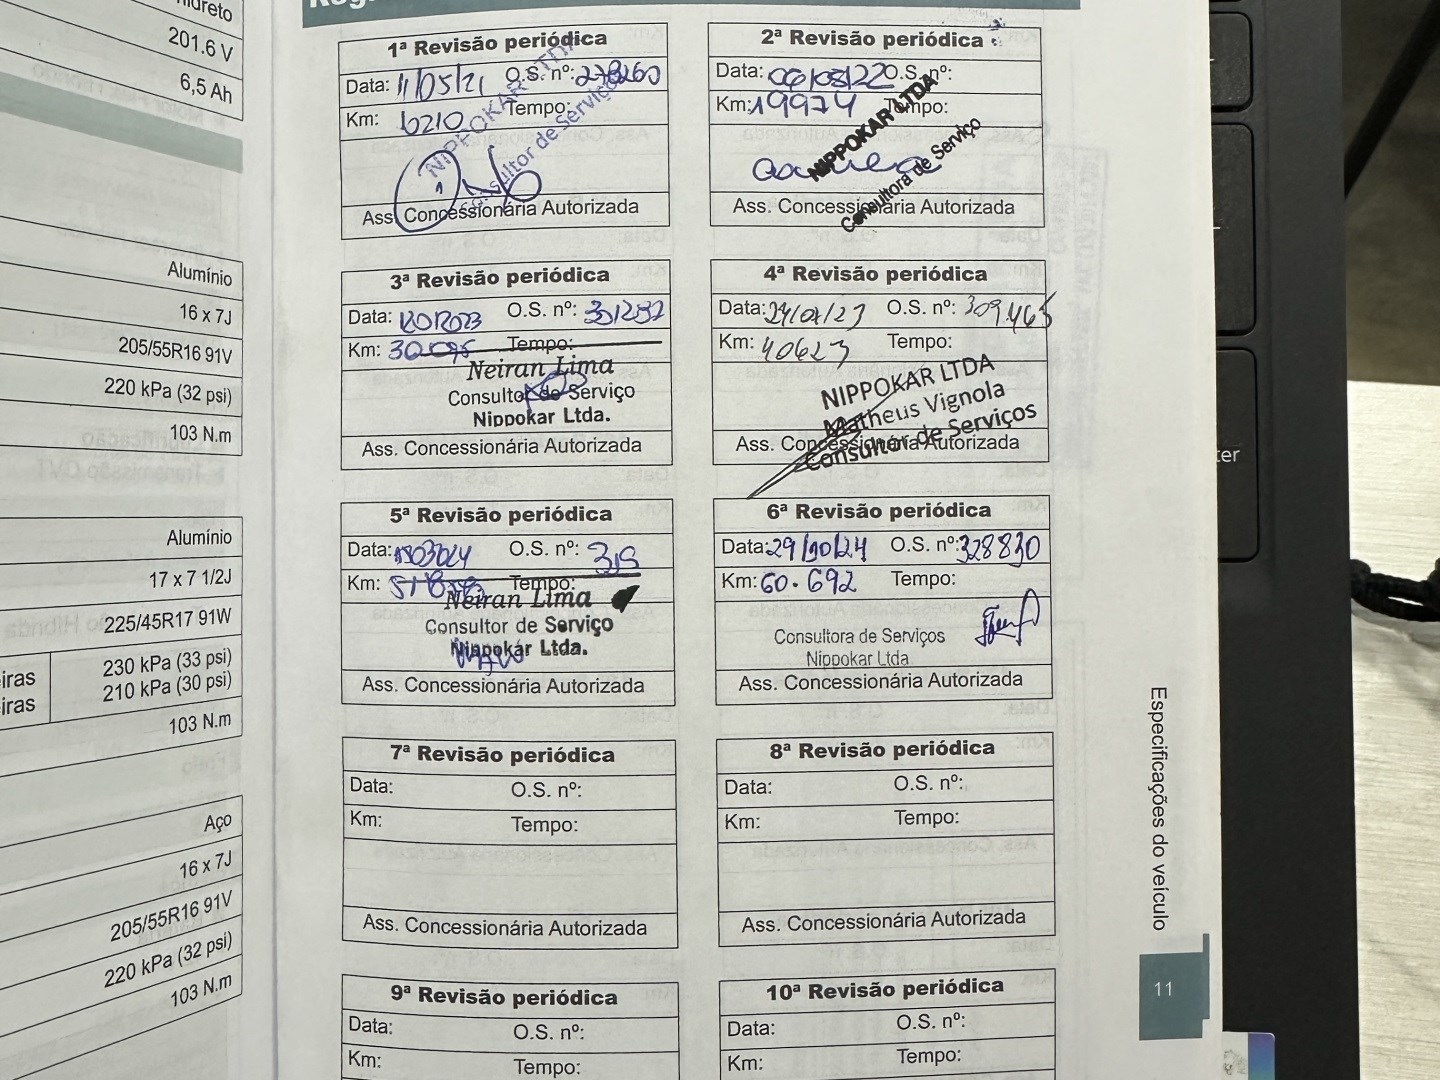 201.6 V
6,5 Ah
Alumínio
16 x 7J
205/55R16 91V
220 kPa (32 psi)
103 N.m
Alumínio
17 x 7 1/2J
225/45R17 91W
iras 230 kPa (33 psi)
iras 210 kPa (30 psi)
103 N.m
Aço
16 x 7J
205/55R16 91V
220 kPa (32 psi)
103 N.m
1ª Revisão periódica
Data: 11/05/21 O.S. nº: 278260
Km: 6210 Tempo:
NIPPOKAR LTDA
Consultor de Serviço
Ass. Concessionária Autorizada
2ª Revisão periódica
Data: 06/05/22 O.S. nº:
Km: 19974 Tempo:
NIPPOKAR LTDA
Consultora de Serviço
Ass. Concessionária Autorizada
3ª Revisão periódica
Data: O.S. nº: 301282
Km: 30.096 Tempo:
Neiran Lima
Consultor de Serviço
Nippokar Ltda.
Ass. Concessionária Autorizada
4ª Revisão periódica
Data: O.S. nº: 309.465
Km: 40623 Tempo:
NIPPOKAR LTDA
Matheus Vignola
Consultor de Serviços
Ass. Concessionária Autorizada
5ª Revisão periódica
Data: O.S. nº:
Km: Tempo:
Neiran Lima
Consultor de Serviço
Nippokar Ltda.
Ass. Concessionária Autorizada
6ª Revisão periódica
Data: 29/10/24 O.S. nº: 328830
Km: 60.692 Tempo:
Consultora de Serviços
Nippokar Ltda
Ass. Concessionária Autorizada
7ª Revisão periódica
Data: O.S. nº:
Km: Tempo:
Ass. Concessionária Autorizada
8ª Revisão periódica
Data: O.S. nº:
Km: Tempo:
Ass. Concessionária Autorizada
9ª Revisão periódica
Data: O.S. nº:
Km: Tempo:
10ª Revisão periódica
Data: O.S. nº:
Km: Tempo:
Especificações do veículo
11